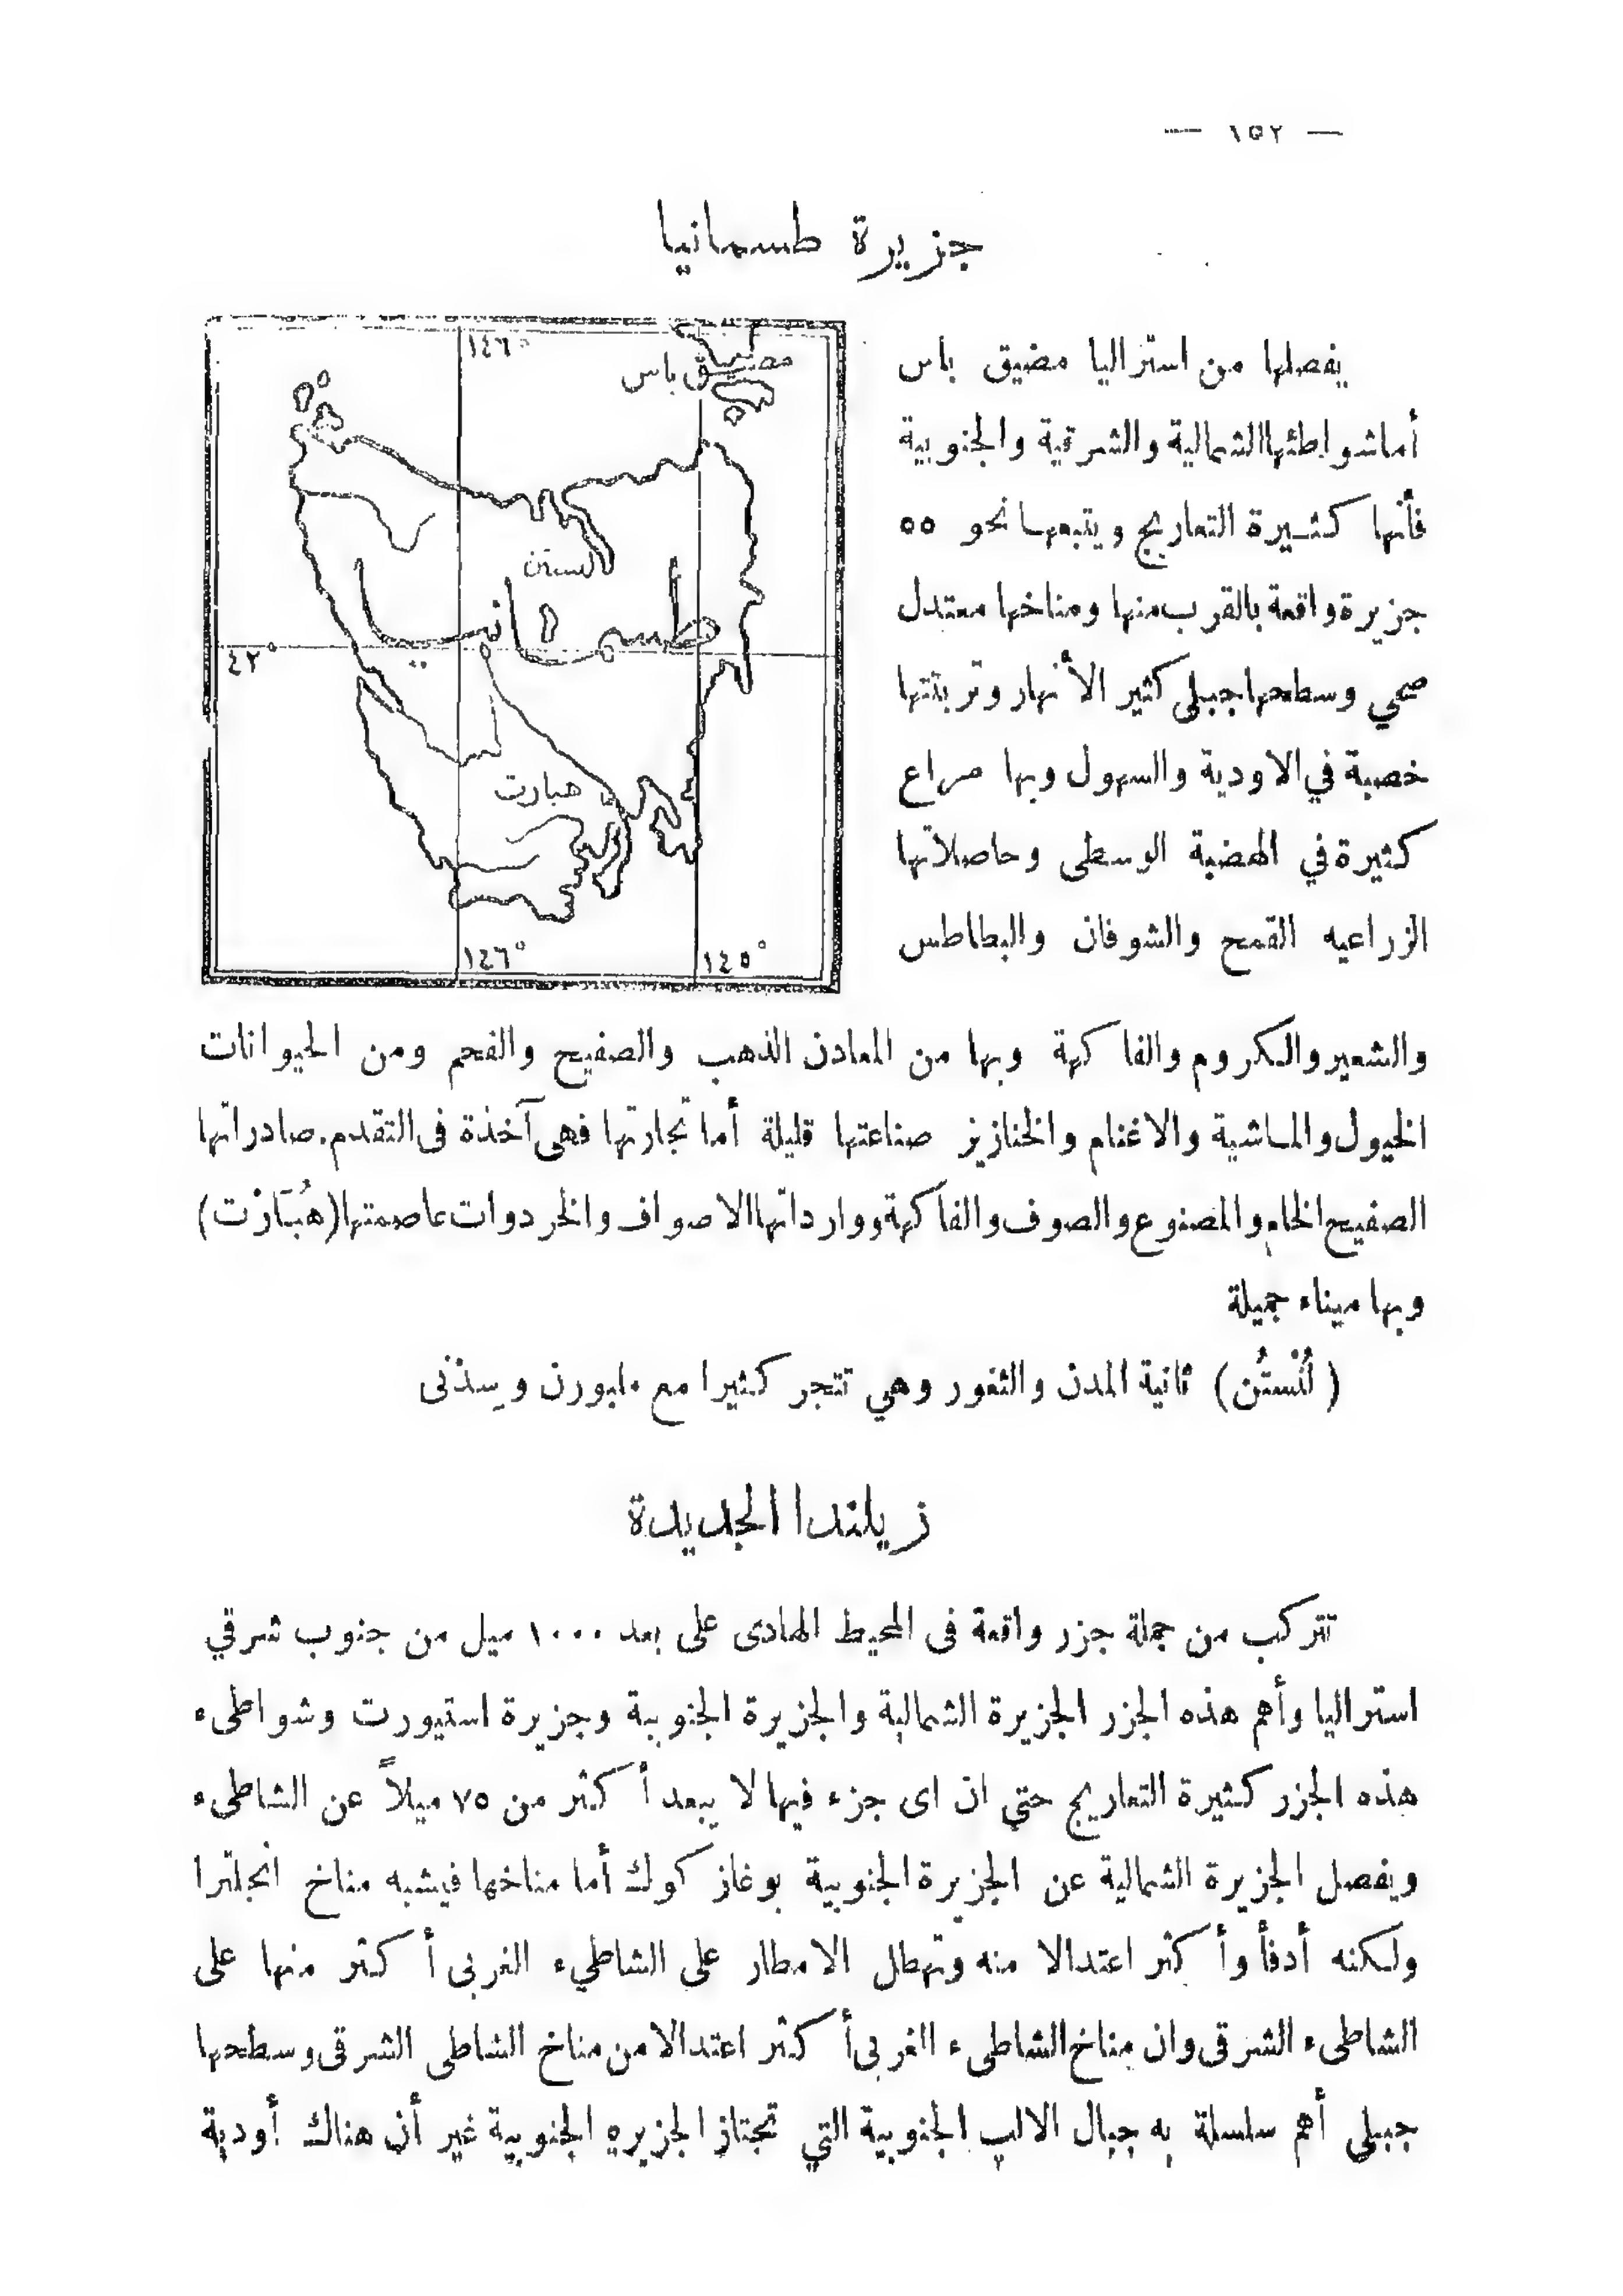 — ١٥٢ —
جزيرة طسمانيا
يفصلها من استراليا مضيق باس
أما شواطئها الشمالية والشرقية والجنوبية
فأنها كثيرة التعاريج ويتبعها نحو ٥٥
جزيرة واقعة بالقرب منها ومناخها معتدل
صحي وسطحها جبلى كثير الأنهار وتربتها
خصبة في الاودية والسهول وبها مراع
كثيرة في الهضبة الوسطى وحاصلاتها
الزراعيه القمح والشوفان والبطاطس
١٤٦°
مضيق باس
لنستن
طسمانيا
٤٢°
هبارت
١٤٦°
١٤٥°
والشعير والكروم والفاكهة وبها من المعادن الذهب والصفيح والفحم ومن الحيوانات
الخيول والماشية والاغنام والخنازيز صناعتها قليلة أما تجارتها فهى آخذة فى التقدم. صادراتها
الصفيح الخام والمصنوع والصوف والفاكهة ووارداتها الاصواف والخردوات عاصمتها (هُبَارْت)
وبها ميناء جميلة
(لُنْستُن) ثانية المدن والثغور وهي تتجر كثيرا مع ملبورن وسِدْنى
زيلندا الجديدة
تتركب من جملة جزر واقعة فى المحيط الهادى على بعد ١٠٠٠ ميل من جنوب شرقي
استراليا وأهم هذه الجزر الجزيرة الشمالية والجزيرة الجنوبية وجزيرة استيورت وشواطىء
هذه الجزر كثيرة التعاريج حتي ان اى جزء فيها لا يبعد أكثر من ٧٥ ميلاً عن الشاطىء
ويفصل الجزيرة الشمالية عن الجزيرة الجنوبية بوغاز كوك أما مناخها فيشبه مناخ انجلترا
ولكنه أدفأ وأكثر اعتدالا منه وتهطل الامطار على الشاطيء الغربى أكثر منها على
الشاطىء الشرقى وان مناخ الشاطىء الغربى أكثر اعتدالا من مناخ الشاطى الشرقى وسطحها
جبلى أهم سلسلة به جبال الالب الجنوبية التي تجتاز الجزيره الجنوبية غير أن هناك أودية